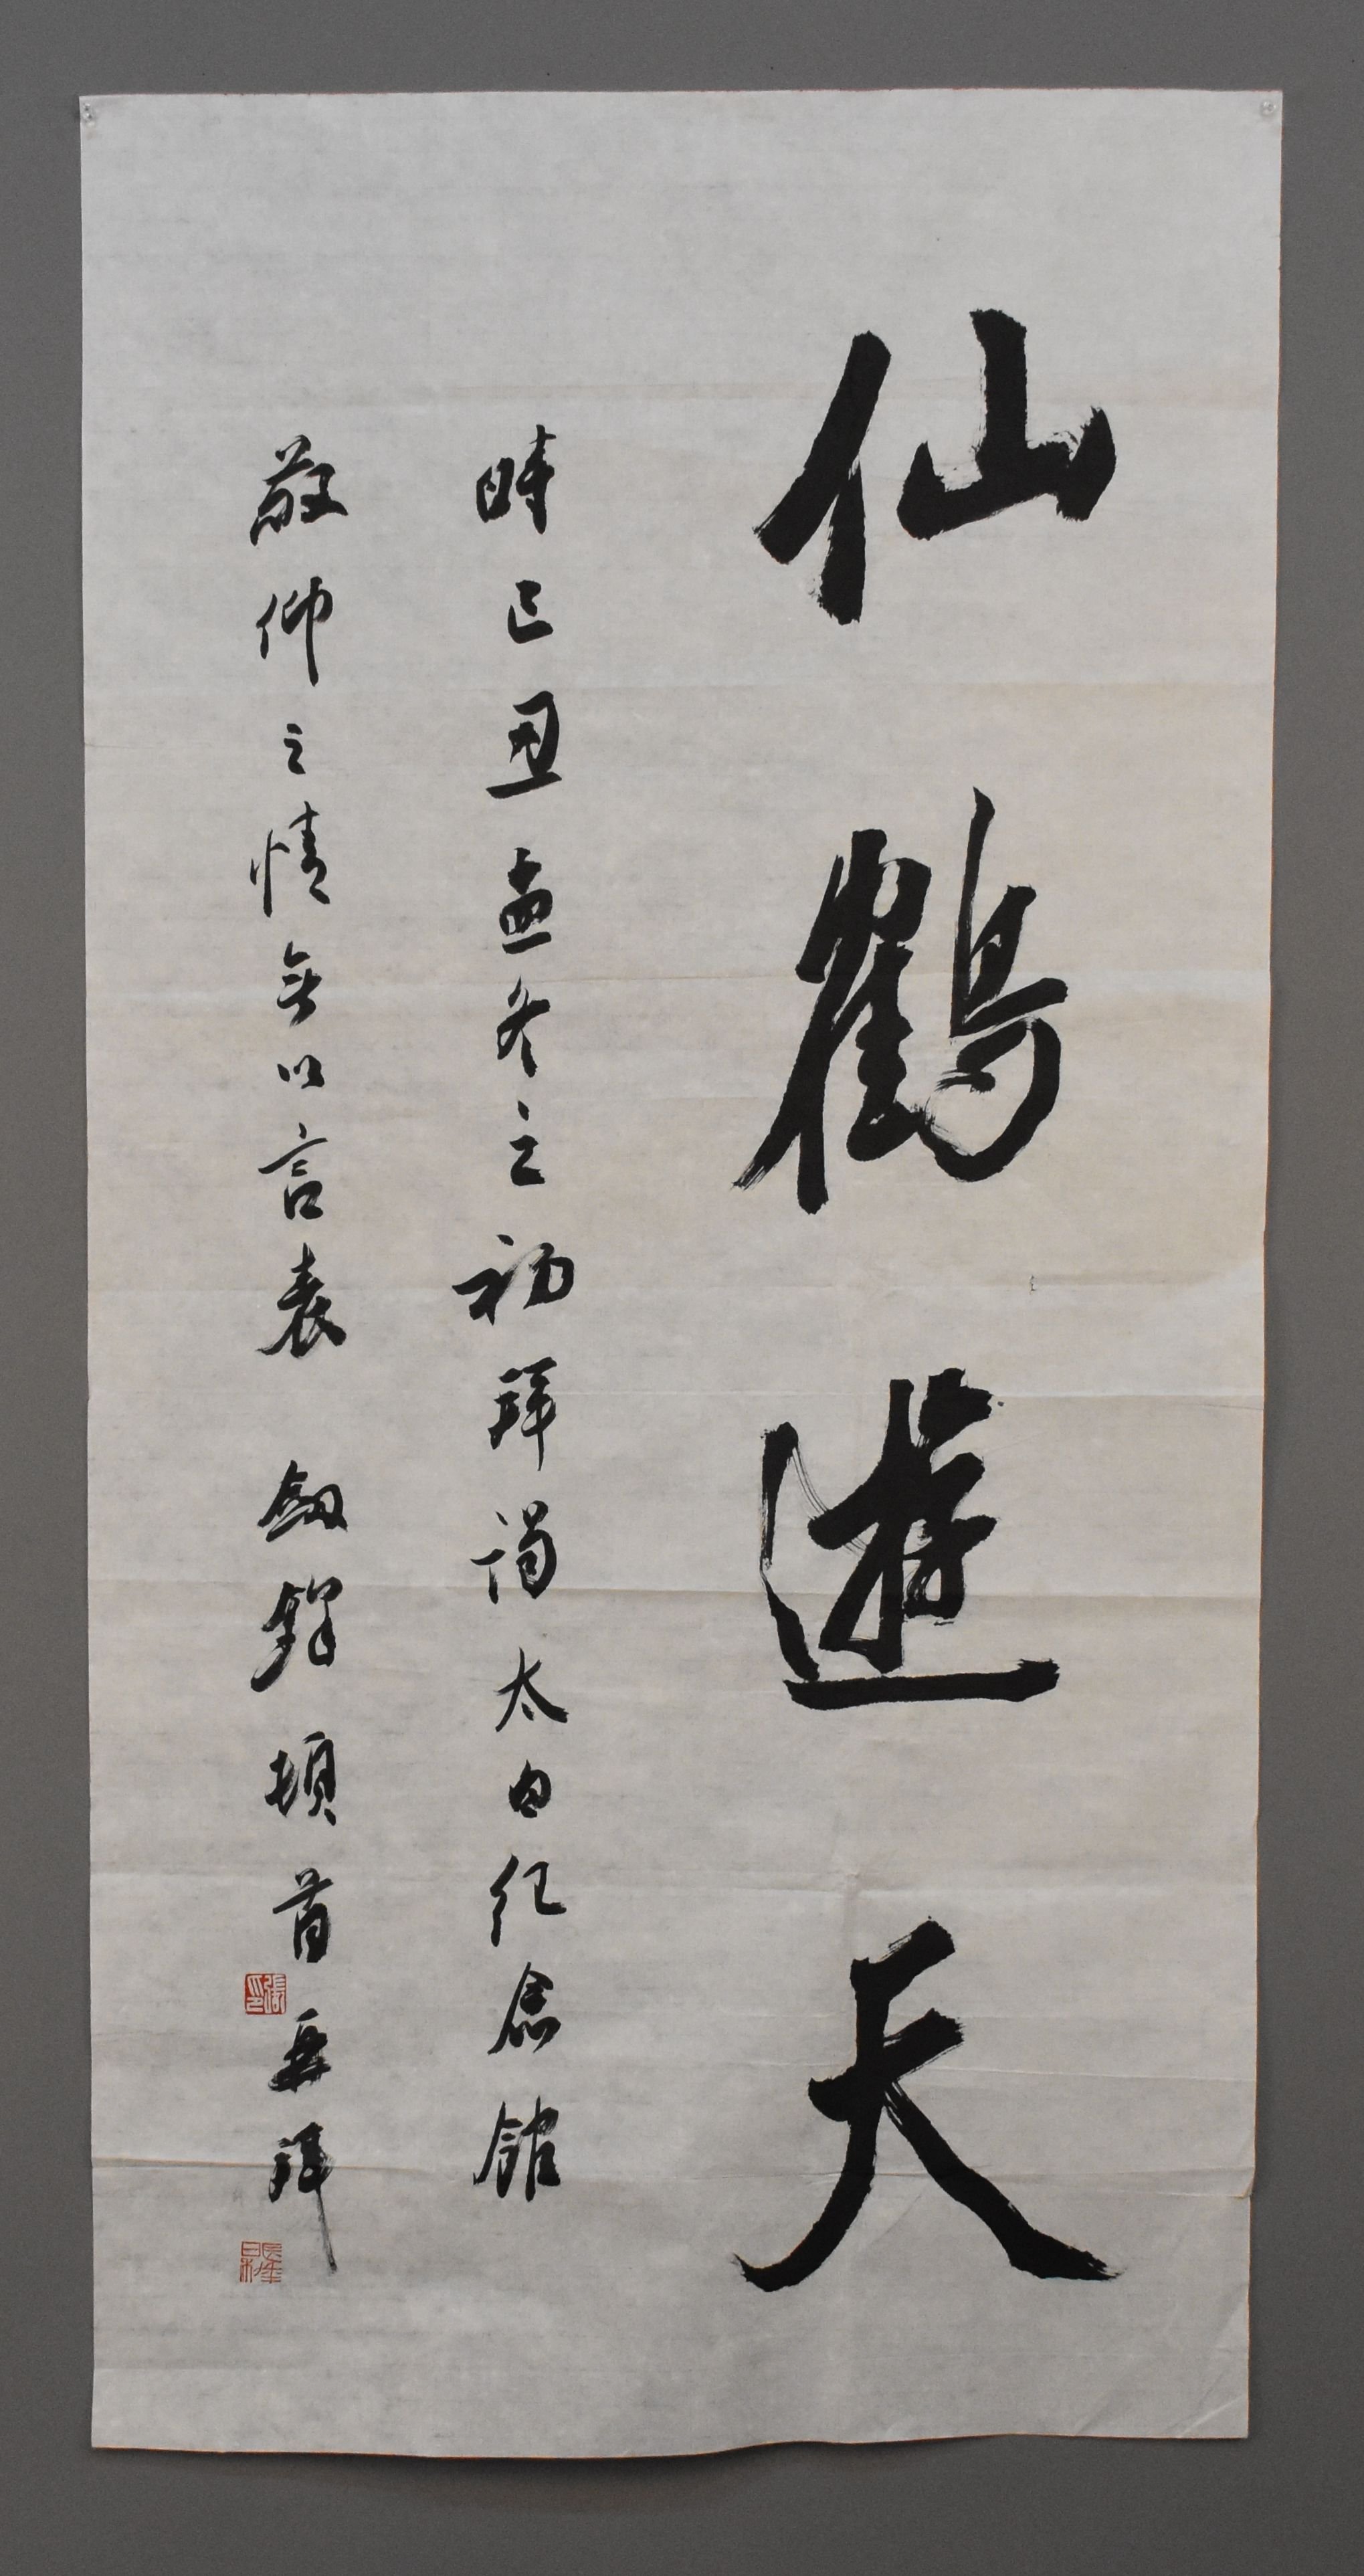 仙鶴遊天
時己丑孟冬之初拜謁太白纪念館
敬仰之情無以言表 劍鋒頓首再拜